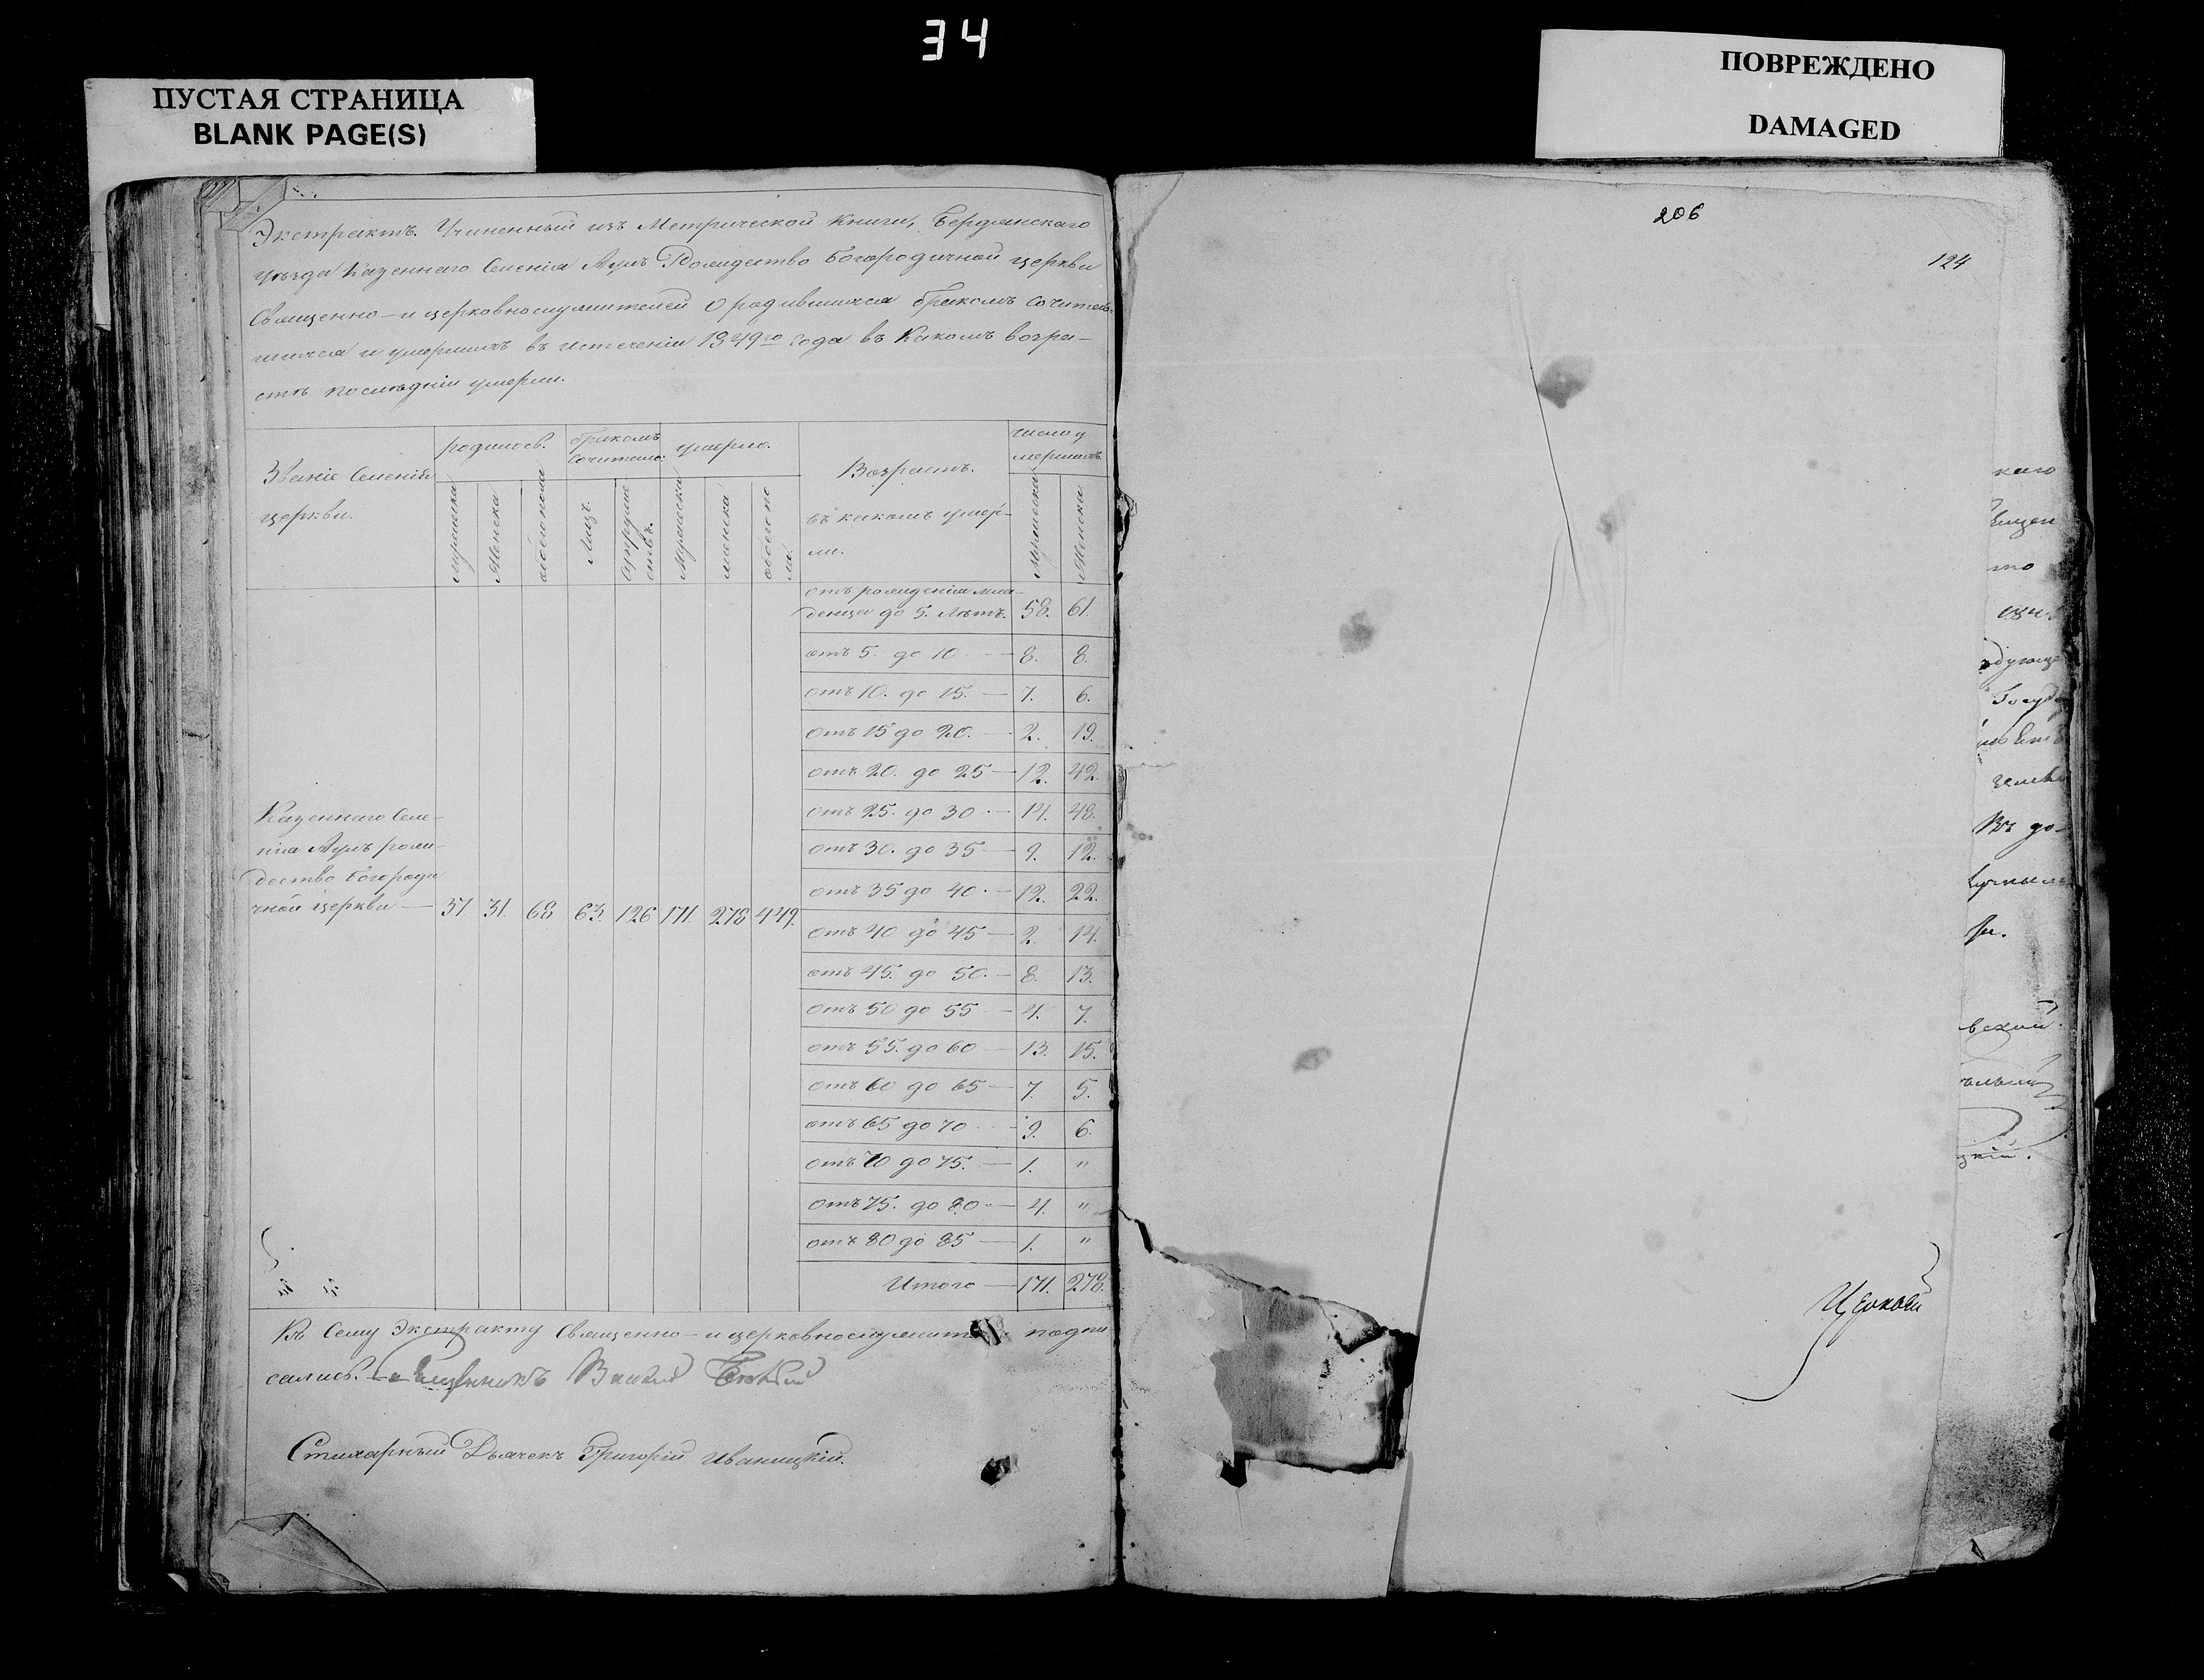 34
ПУСТАЯ СТРАНИЦА
BLANK PAGE(S)
ПОВРЕЖДЕНО
DAMAGED
Экстрактъ. Учиненный изъ Метрической Книги, Бердянскаго
уѣзда Казеннаго Селенія Аулъ Рождество Богородичной церкви
Священно-и церковнослужителей О родившихся бракомъ Сочитав-
шихся и умершихъ въ истеченіи 1849го года въ Какомъ возра-
стѣ послѣдніи умерли.
Званіе Селенія церкви.
родилось.
бракомъ Сочитано:
умерло.
Возрастъ. въ какомъ умер-
ли.
число у
мершихъ.
мужеска
Женска
обоего пола
Лицъ.
супруже
ствъ.
Мужеска
женска
обоего по
ла.
Мужеска
Женска
отъ рожденія мла-
денца до 5. Лѣтъ. 58. 61.
отъ 5. до 10 — 8. 8.
отъ 10. до 15. — 7. 6.
отъ 15 до 20. — 2. 19.
отъ 20. до 25 — 12. 42.
отъ 25. до 30 — 14. 48.
отъ 30. до 35 — 9. 12.
отъ 35 до 40. — 12. 22.
отъ 40 до 45 — 2. 14.
отъ 45. до 50. — 8. 13.
отъ 50 до 55 — 4. 7.
отъ 55. до 60 — 13. 15.
отъ 60 до 65 — 7. 5.
отъ 65 до 70 — 9. 6.
отъ 70 до 75. — 1. "
отъ 75. до 80 — 4. "
отъ 80 до 85 — 1. "
Итого — 171. 278.
Казеннаго Селе-
нія Аулъ рож-
дество Богороди
чной церкви — 37 31. 68 63 126 171. 278 449.
Къ Сему Экстракту Священно-и церковнослужит подпи
сались. Священникъ
Стихарный Дьячекъ Григорій Иваницкій.
206
124
каго
то
Госуд
Въ до-
вской.
цкій.